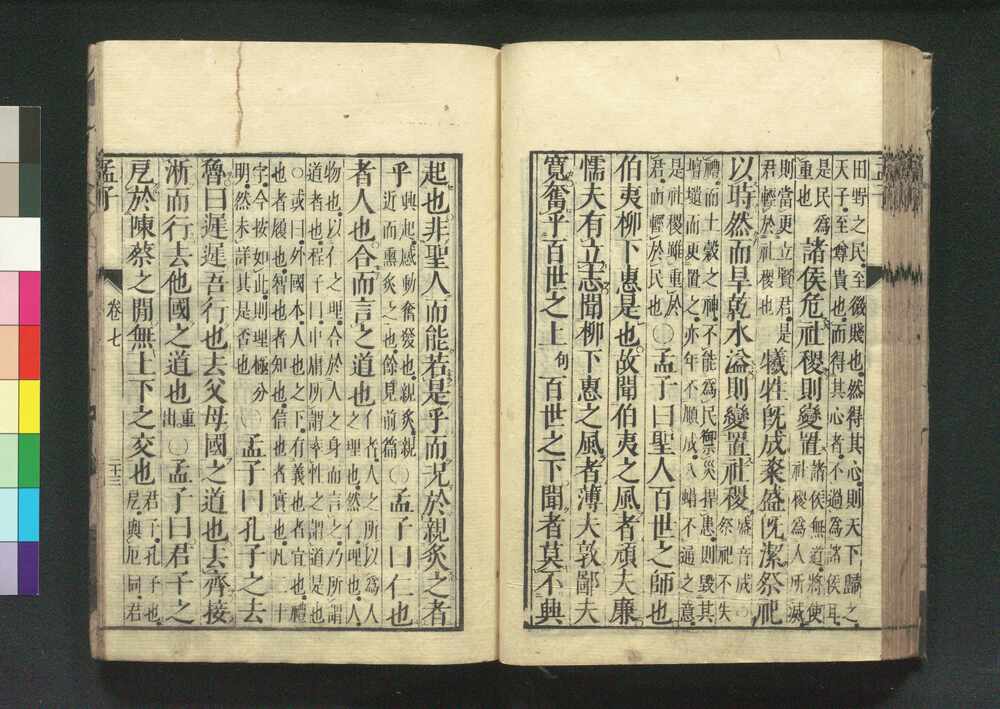 田野之民至微賤也然得其心則天下歸之
天子至尊貴也而得其心者不過為諸侯耳
是民為
重也
諸侯危社稷則變置
諸侯無道將使
社稷為人所滅
則當更立賢君是
君輕於社稷也
犧牲既成粢盛既潔祭祀
以時然而旱乾水溢則變置社稷
盛音成〇
祭祀不失
禮而土穀之神不能為民禦災捍患則毀其
壇壝而更置之亦年不順成八蜡不通之意
是社稷雖重於
君而輕於民也
〇孟子曰聖人百世之師也
伯夷柳下惠是也故聞伯夷之風者頑夫廉
懦夫有立志聞柳下惠之風者薄夫敦鄙夫
寬奮乎百世之上句百世之下聞者莫不興
起也非聖人而能若是乎而況於親炙之者
乎
興起感動奮發也親炙親
近而熏炙之也餘見前篇
〇孟子曰仁也
者人也合而言之道也
仁者人之所以為人
之理也然仁理也人
物也以仁之理合於人之身而言之乃所謂
道者也程子曰中庸所謂率性之謂道是也
〇或曰外國本人也之下有義也者宜也禮
也者履也智也者知也信也者實也凡二十
字今按如此則理極分
明然未詳其是否也
〇孟子曰孔子之去
魯曰遲遲吾行也去父母國之道也去齊接
淅而行去他國之道也
重
出
〇孟子曰君子之
戹於陳蔡之閒無上下之交也
君子孔子也
戹與厄同君
孟子
卷七